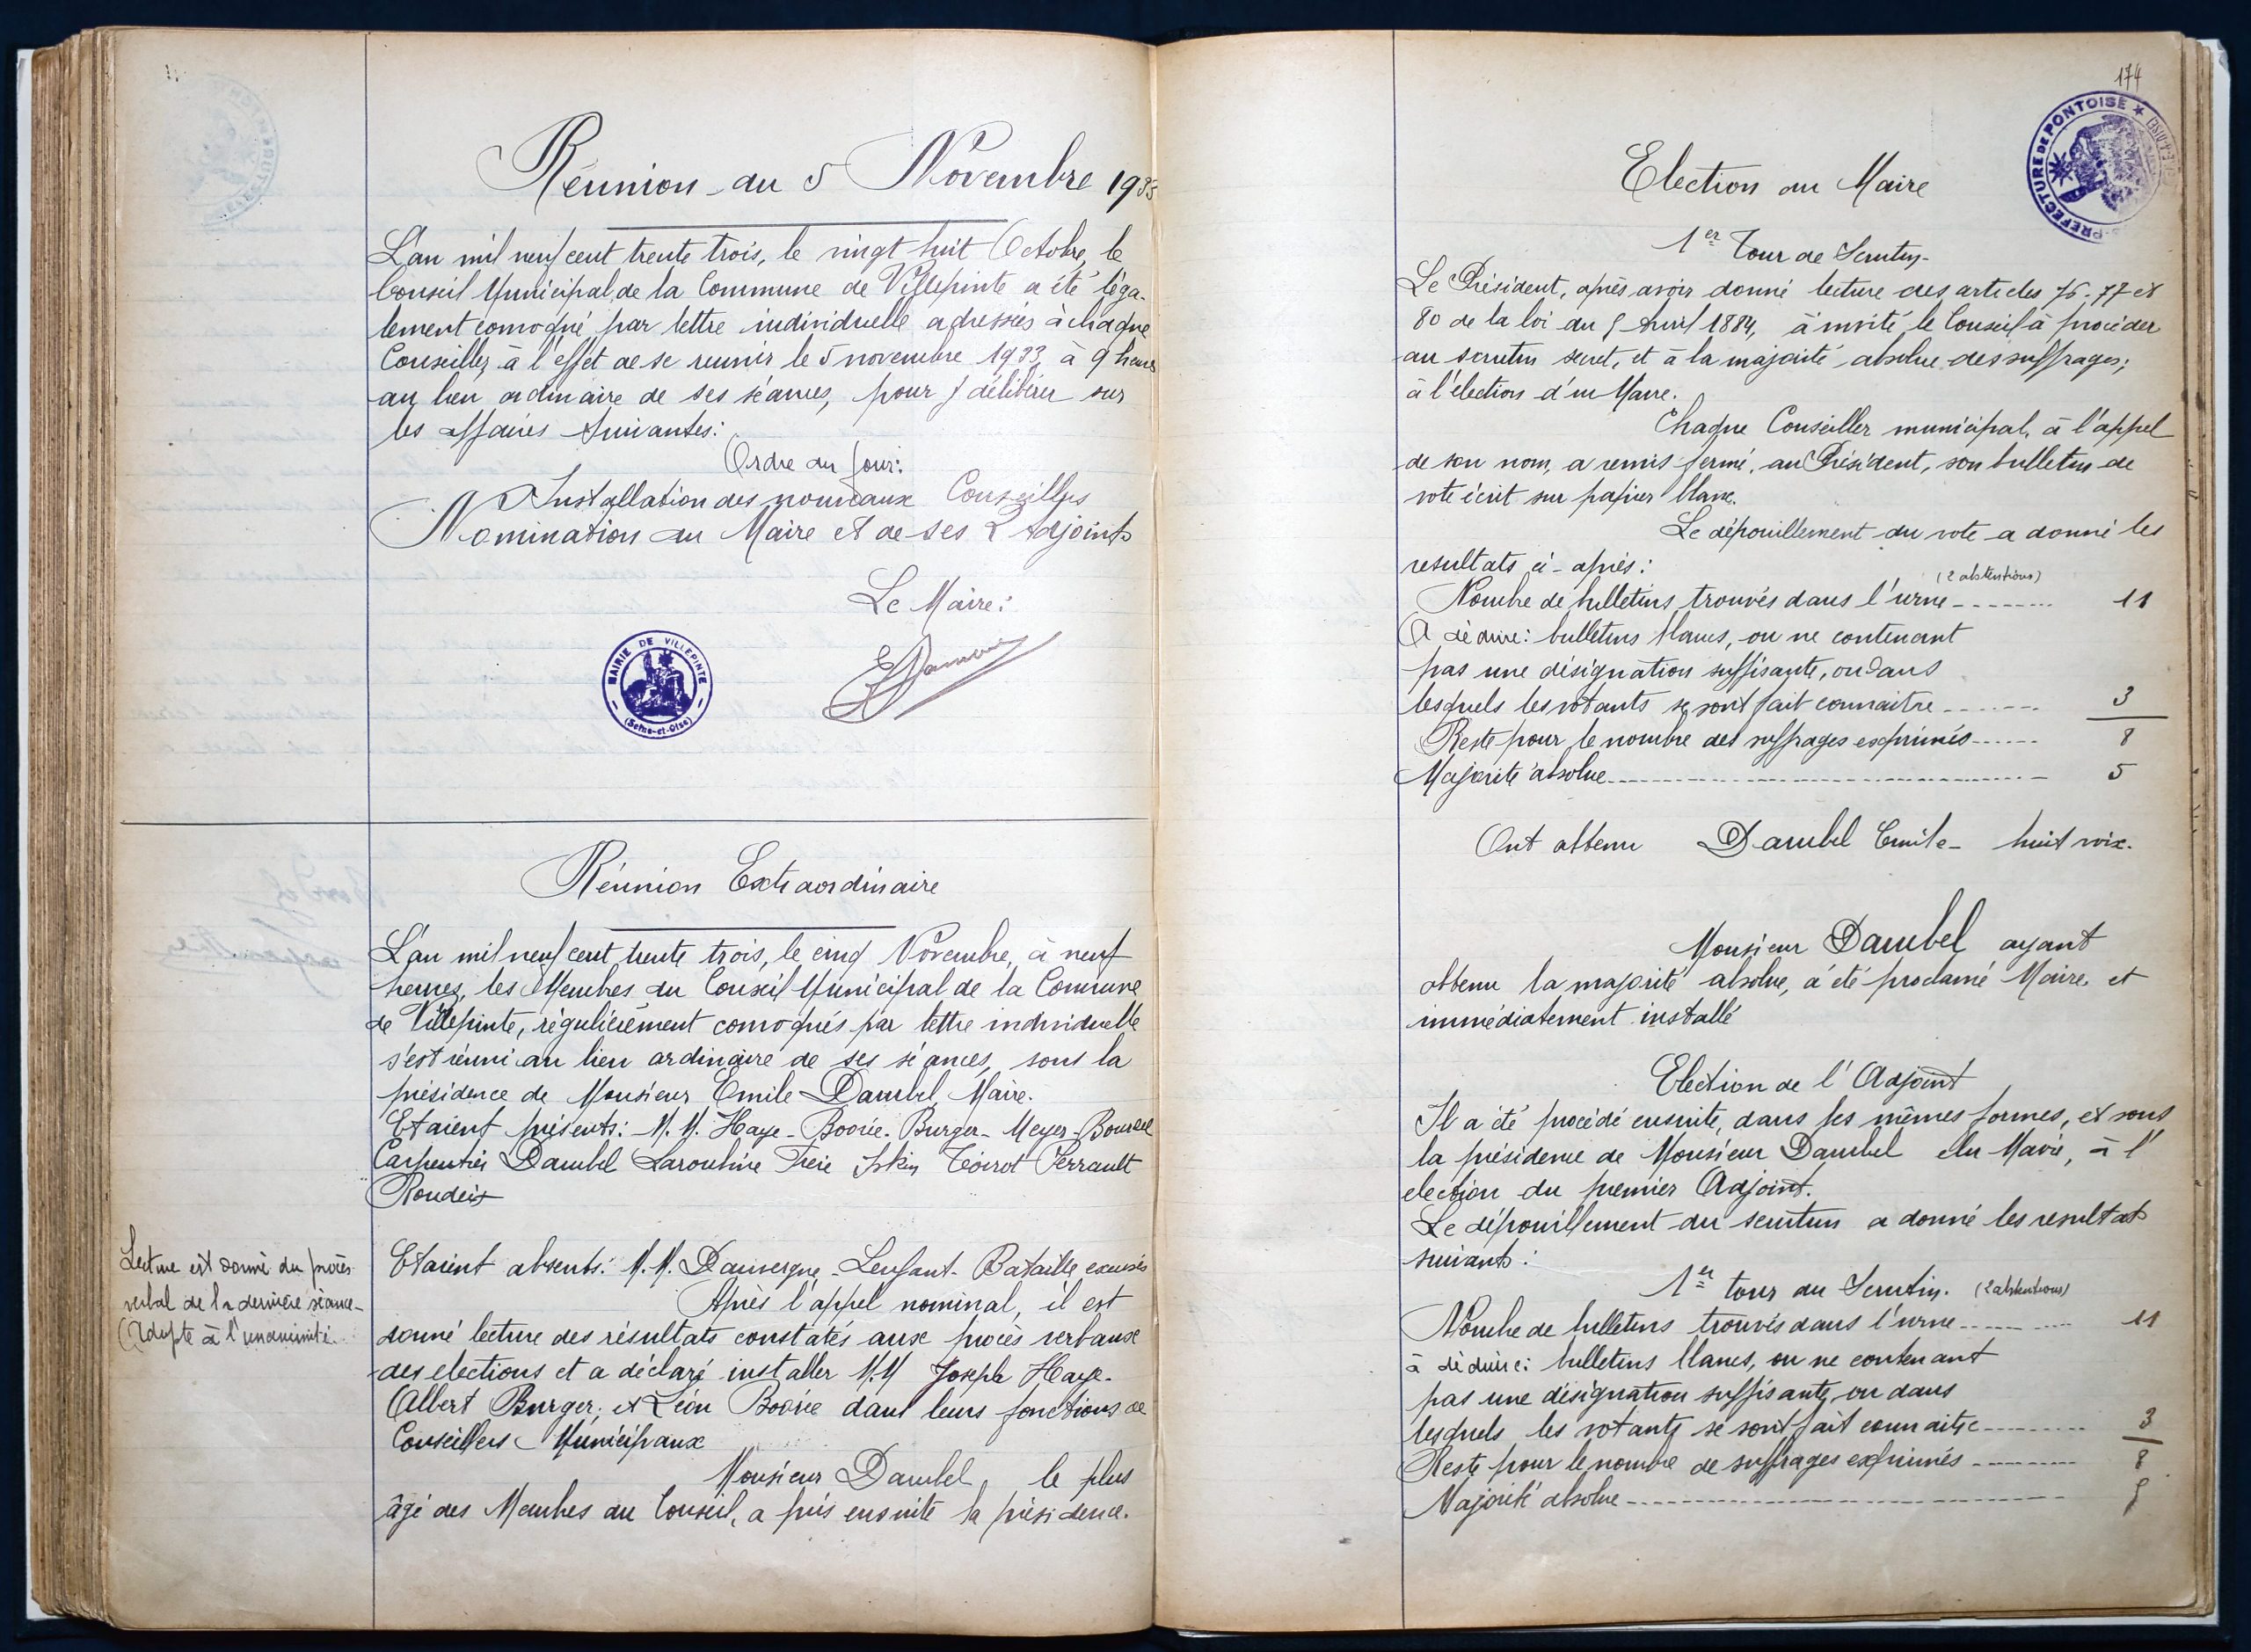 Réunion du 5 Novembre 1933
L'an mil neuf cent trente trois, le vingt huit Octobre, le
Conseil Municipal de la Commune de Villepinte a été léga-
lement convoqué par lettre individuelle adressées à chaque
Conseiller, à l'effet de se reunir le 5 novembre 1933, à 9 heures
au lieu ordinaire de ses séances, pour y délibérer sur
les affaires suivantes:
Ordre du jour:
Installation des nouveaux Conseillers
Nomination du Maire et de ses 2 Adjoints
Le Maire:
MAIRIE DE VILLEPINTE
(Seine-et-Oise)
Réunion Extraordinaire
L'an mil neuf cent trente trois, le cinq Novembre, à neuf
heures, les Membres du Conseil Municipal de la Commune
de Villepinte, régulièrement convoqués par lettre individuelle
s'est réuni au lieu ordinaire de ses séances, sous la
présidence de Monsieur Emile Dambel, Maire.
Etaient présents: M.M. Haye - Boovie - Burger - Meyer -
Carpentier Dambel Toirot Perrault
Lecture est donné du procès
verbal de la dernière séance -
Adopté à l'unanimité.
Etaient absents: M.M. Dauvergne - Lenfant - Bataille excusés
Après l'appel nominal, il est
donné lecture des résultats constatés aux procès verbaux
des elections et a déclaré installer M.M Joseph Haye -
Albert Burger, et Léon Boovie dans leurs fonctions de
Conseillers Municipaux
Monsieur Dambel, le plus
âgé des Membres du Conseil, a pris ensuite la présidence.
174
S-PREFECTURE DE PONTOISE
Election du Maire
1er Tour de Scrutin -
Le Président, après avoir donné lecture des articles 76. 77 et
80 de la loi du 5 Avril 1884, à invité le Conseil à procéder
au scrutin secret, et à la majorité absolue des suffrages;
à l'élection d'un Maire.
Chaque Conseiller municipal, à l'appel
de son nom, a remis fermé, au Président, son bulletin de
vote écrit sur papier blanc.
Le dépouillement du vote a donné les
resultats ci-après:
(2 abstentions)
Nombre de bulletins trouvés dans l'urne 11
A déduire: bulletins blancs, ou ne contenant
pas une désignation suffisante, ou dans
lesquels les votants se sont fait connaitre 3
Reste pour le nombre des suffrages exprimés 8
Majorité absolue 5
Ont obtenu Dambel Emile - huit voix.
Monsieur Dambel ayant
obtenu la majorité absolue, à été proclamé Maire, et
immédiatement installé
Election de l'Adjoint
Il a été procédé ensuite, dans les mêmes formes, et sous
la présidence de Monsieur Dambel élu Maire, à l'
election du premier Adjoint.
Le dépouillement du scrutin a donné les resultats
suivants:
1er tour du Scrutin. (2 abstentions)
Nombre de bulletins trouvés dans l'urne 11
à déduire: bulletins blancs, ou ne contenant
pas une désignation suffisante, ou dans
lesquels les votants se sont fait connaitre 3
Reste pour le nombre de suffrages exprimés 8
Majorité absolue 5